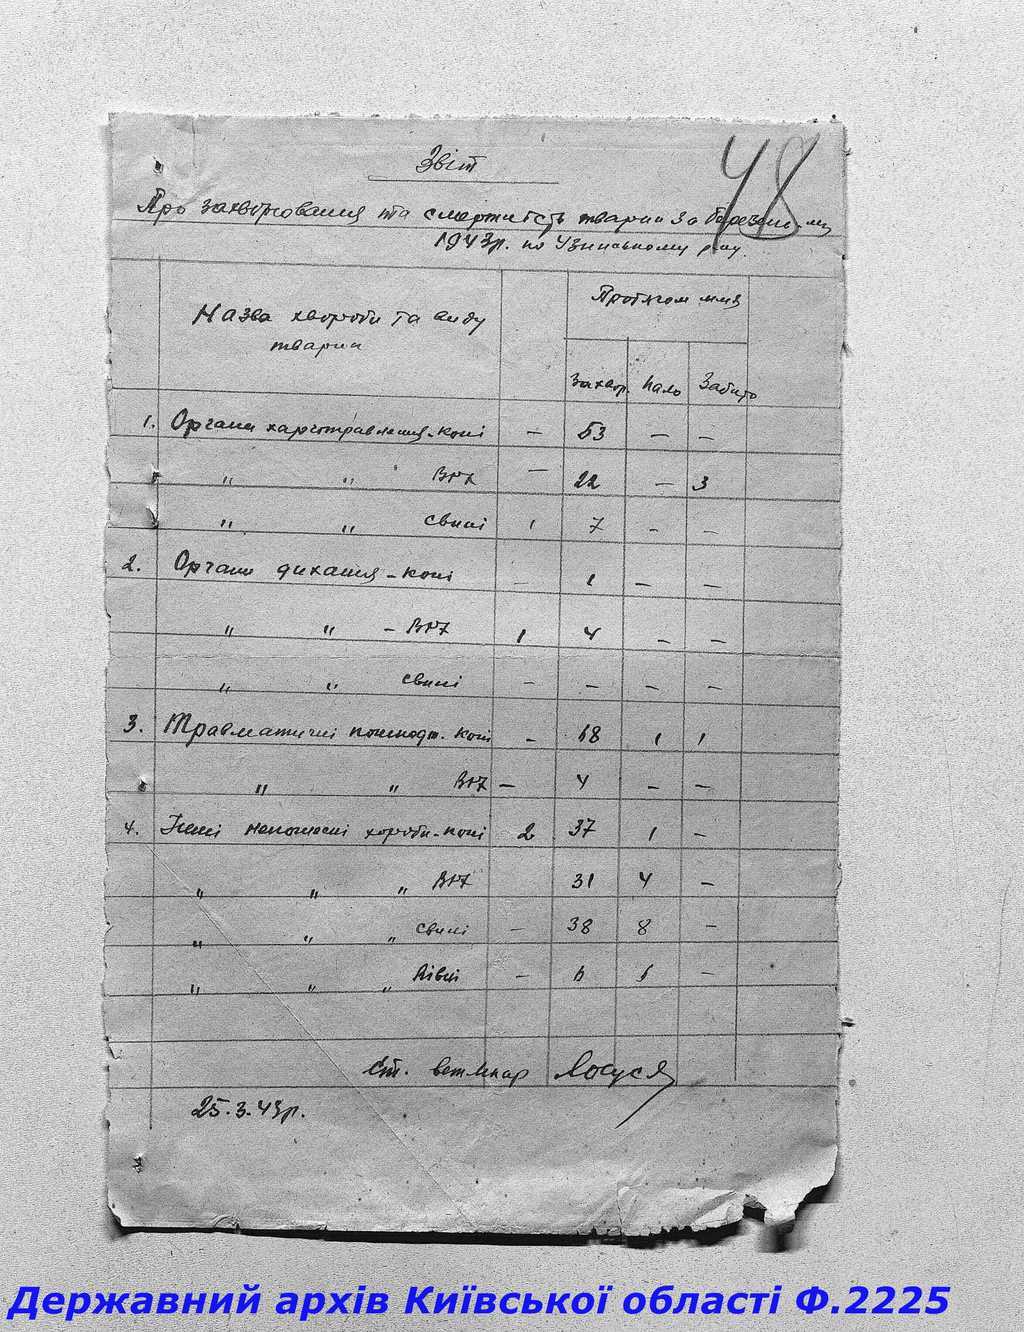 48
Звіт
Про захворювання та смертність тварин за березень м-ць
1943р. по Узинському р-ну.
Назва хвороби та виду тварин
Протягом м-ця
Захвор. Пало Забито
1. Органи харчотравлення - коні — 53 — —
" " ВРХ — 22 — 3
" " свині 1 7 — —
2. Органи дихання - коні — 1 — —
" " - ВРХ 1 4 — —
" " свині — — — —
3. Травматичні пошкодж. коні — 18 1 1
" " ВРХ — 4 — —
4. Інші незаразні хороби - коні 2 37 1 —
" " " ВРХ 31 4 —
" " " свині — 38 8 —
" " " вівці —
Ст. ветлікар
25.3.43р.
Державний архів Київської області Ф.2225